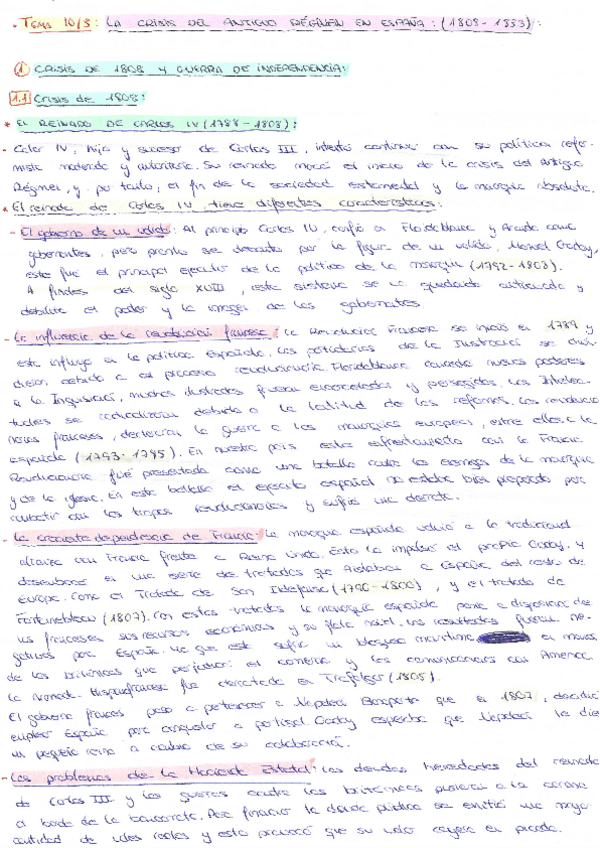 - TEMA 10/3: LA CRISIS DEL ANTIGUO RÉGIMEN EN ESPAÑA: (1808-1833):
1 CRISIS DE 1808 Y GUERRA DE INDEPENDENCIA:
1.1 Crisis de 1808:
* EL REINADO DE CARLOS IV (1788-1808):
- Carlos IV, hijo y sucesor de Carlos III, intentó continuar con su política refor-
mista moderada y autoritaria. Su reinado marcó el inicio de la crisis del Antiguo
Régimen, y, por tanto, el fin de la sociedad estamental y la monarquía absoluta.
* El reinado de Carlos IV tiene diferentes características:
- El gobierno de un valido: Al principio Carlos IV, confió a Floridablanca y Aranda como
gobernantes, pero pronto se decantó por la figura de un valido, Manuel Godoy,
este fue el principal ejecutor de la política de la monarquía (1792-1808).
A finales del siglo XVIII, este sistema se quedado anticuado y
debilita el poder y la imagen de los gobernantes.
- La influencia de la revolución francesa: La Revolución Francesa se inició en 1789 y
esta influyó en la política Española. Los partidarios de la Ilustración se divi-
dieron debido a el proceso revolucionario. Floridablanca concede nuevos poderes
a la Inquisición, muchos ilustrados fueron encarcelados y perseguidos. Los Intelec-
tuales se radicalizaron debido a la lentitud de las reformas. Los revolucio-
narios franceses, declararon la guerra a las monarquías europeas, entre ellas, a la
española (1793-1795). En nuestro país este enfrentamiento con la Francia
Revolucionaria fue presentada como una batalla contra los enemigos de la monarquía
y de la iglesia. En esta batalla el ejército español no estaba bien preparado para
combatir con las tropas revolucionarias y sufrió una derrota.
- La creciente dependencia de Francia: La monarquía española volvió a la tradicional
alianza con Francia frente a Reino Unido. Esto lo impulsó el propio Godoy, y
desembocó en una serie de tratados que aislaban a España del resto de
Europa. Como el Tratado de San Ildefonso (1796-1800), y el tratado de
Fontainebleau (1807). Con estos tratados la monarquía española pone a disposición de
los franceses sus recursos económicos y su flota naval. Los resultados fueron ne-
gativos para España. Ya que esta sufre un bloqueo marítimo en manos
de los británicos que perjudicó el comercio y las comunicaciones con América.
La Armada Hispanofrancesa fue derrotada en Trafalgar (1805).
El gobierno francés pasó a pertenecer a Napoleón Bonaparte que en 1807, decidió
emplear España para conquistar a Portugal. Godoy esperaba que Napoleón le diera
un pequeño reino a cambio de su colaboración.
- Los problemas de la Hacienda Estatal: Las deudas heredadas del reinado
de Carlos III y las guerras contra los británicos pusieron a la corona
al borde de la bancarrota. Para financiar la deuda pública se emitió una mayor
cantidad de vales reales y esto provocó que su valor cayera en picado.